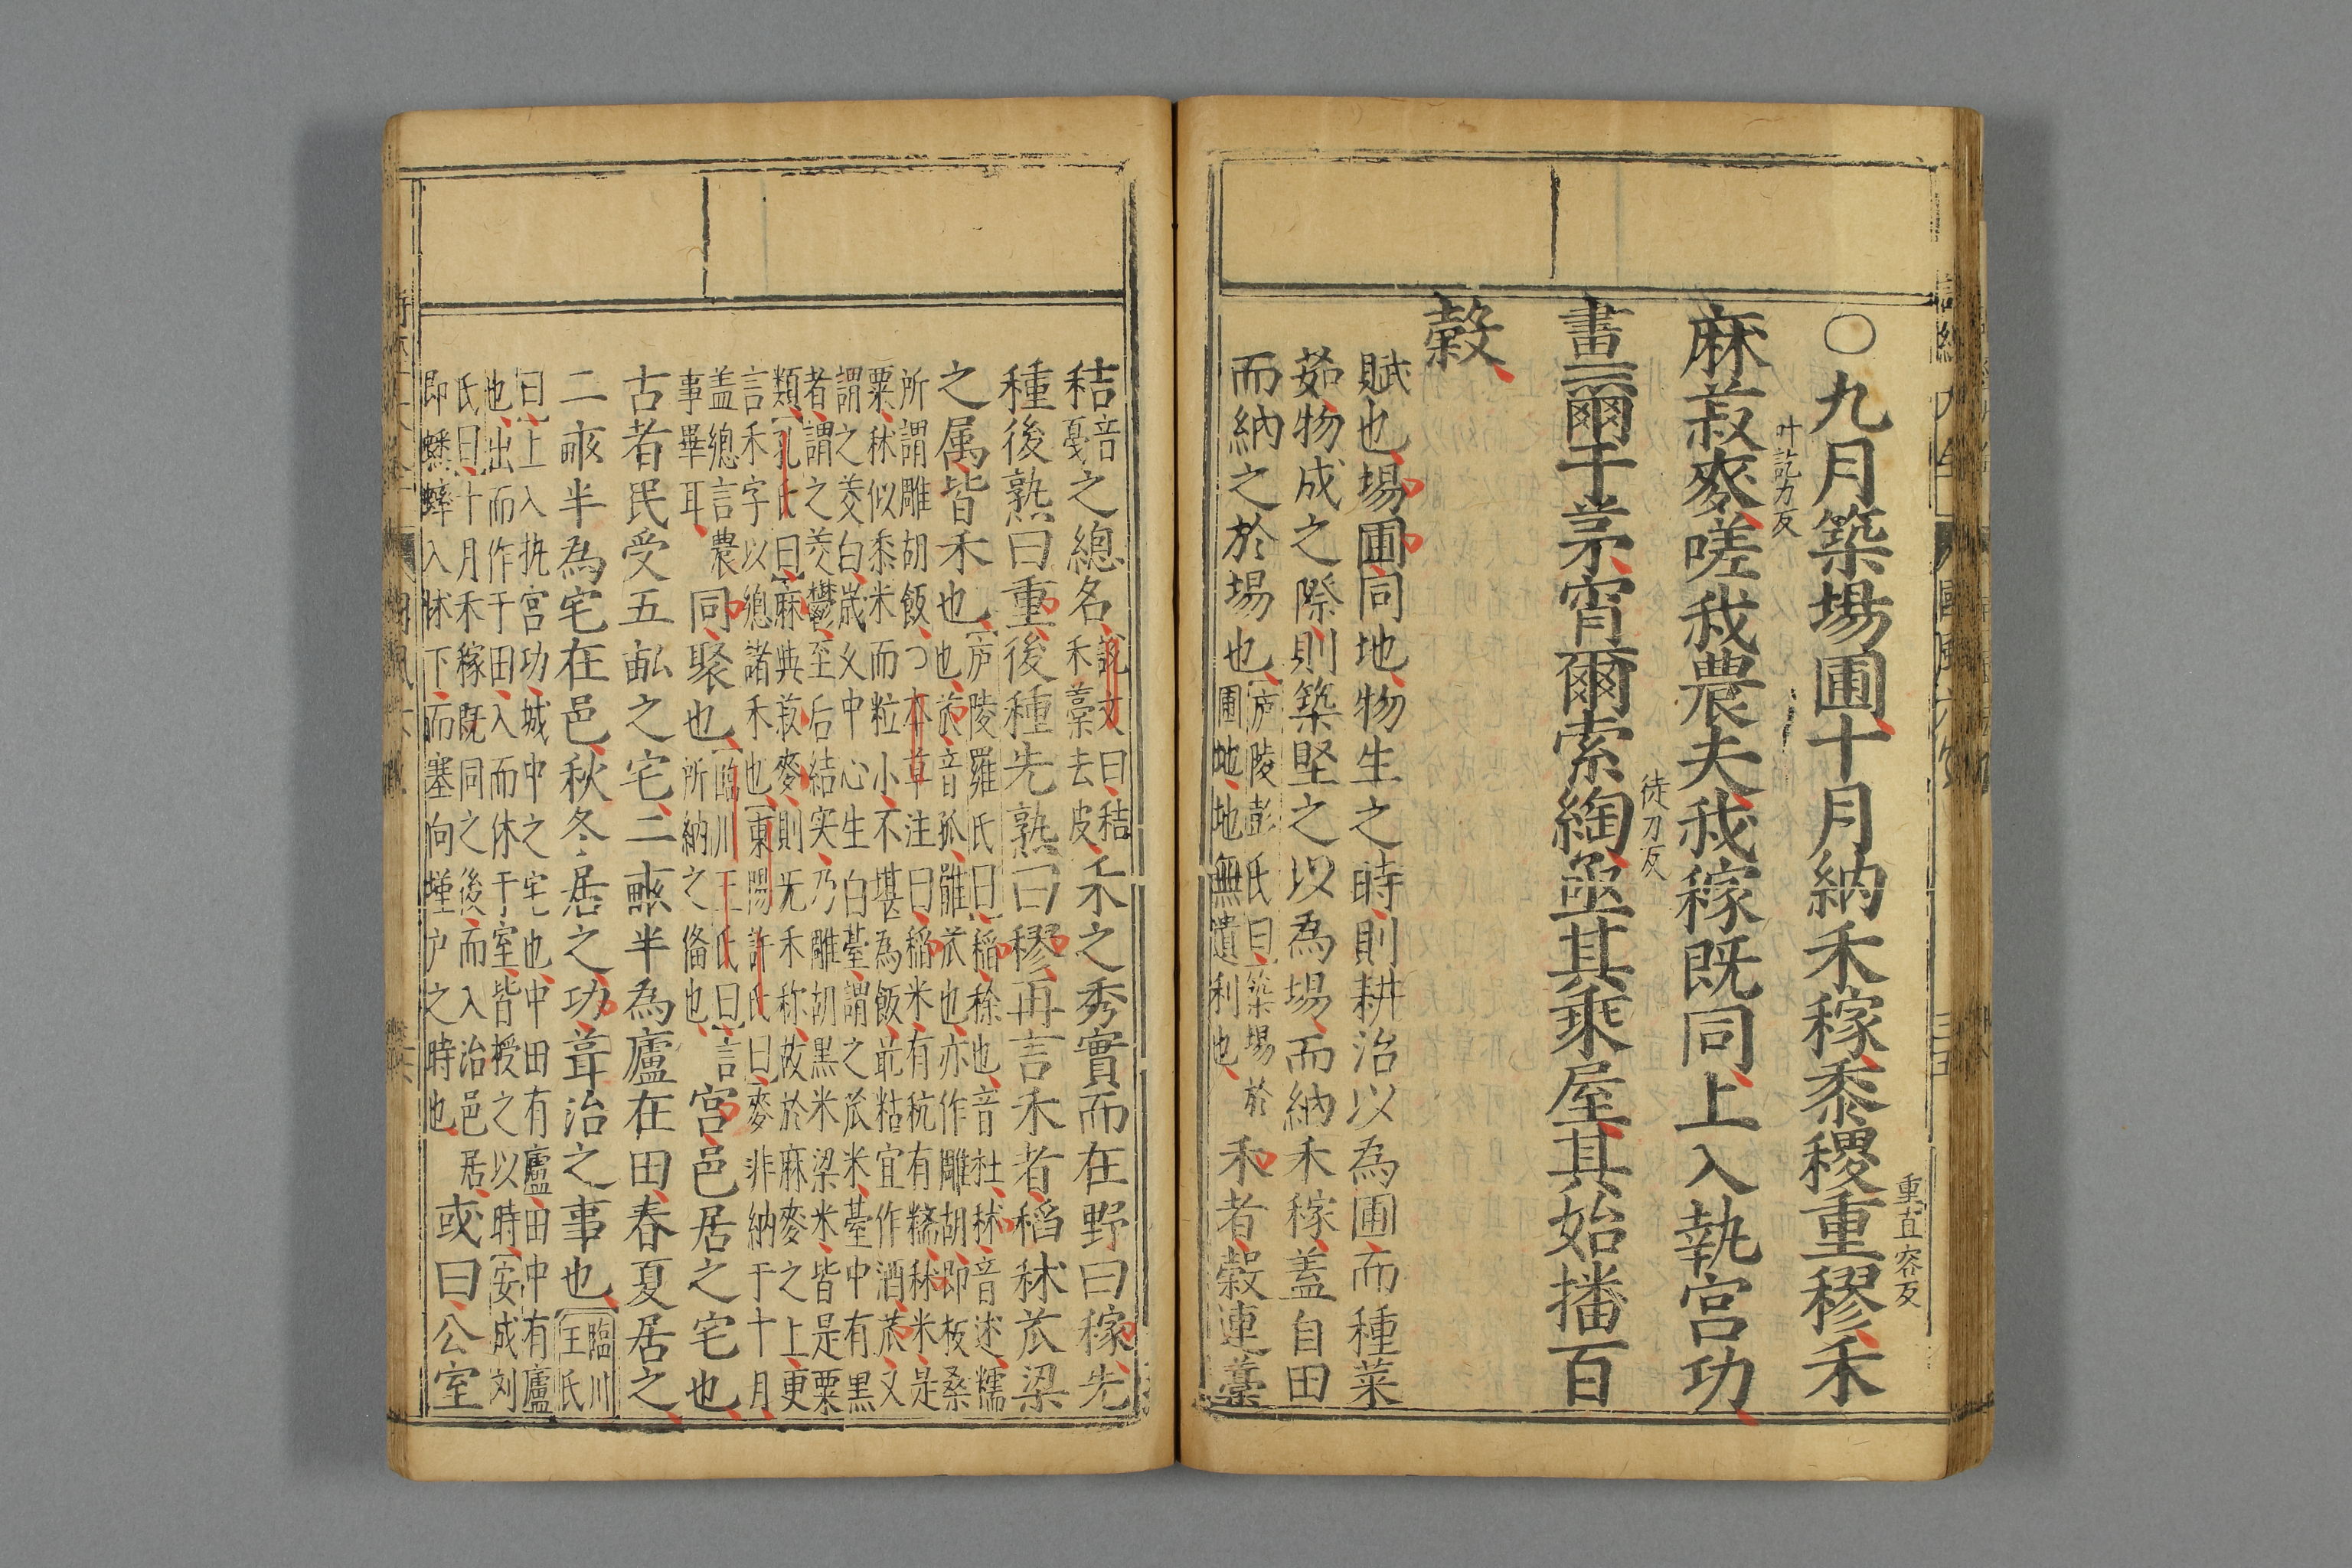 ○九月築場圃十月納禾稼黍稷重穋禾
重直容反
麻菽麥嗟我農夫我稼既同上入執宮功
叶訖力反
晝爾于茅宵爾索綯亟其乘屋其始播百
徒刀反
穀
賦也場圃同地物生之時則耕治以為圃而種菜
茹物成之際則築堅之以為場而納禾稼蓋自田
而納之於場也
廬陵彭氏曰築場於
圃地地無遺利也
禾者穀連藁
秸
音
戞
之總名
說文曰秸
禾藁去皮
禾之秀實而在野曰稼先
種後熟曰重後種先熟曰穋再言禾者稻秫苽粱
之属皆禾也
廬陵羅氏曰稻稌也音杜秫音述糯
也苽音孤雕苽也亦作雕胡即板桑
所謂雕胡飯本草注曰稻米有秔有糯秫米是
粟秫似黍米而粒小不堪為飯最粘宜作酒苽又
謂之茭白歲久中心生白薹謂之苽米薹中有黑
者謂之茭鬱至后結実乃雕胡黒米粱米皆是粟
類
孔氏曰麻與菽麥則无禾称故於麻麥之上更
言禾字以緫諸禾也
東陽許氏曰麥非納于十月
盖緫言農
事畢耳
同聚也
臨川王氏曰言
所納之俻也
宮邑居之宅也
古者民受五畝之宅二畞半為廬在田春夏居之
二畞半為宅在邑秋冬居之功葺治之事也
臨川
王氏
曰上入执宫功城中之宅也中田有廬田中有廬
也出而作于田入而休于室皆授之以時
安成刘
氏曰十月禾稼既同之後而入治邑居
即蟋蟀入牀下而塞向墐户之時也
或曰公室